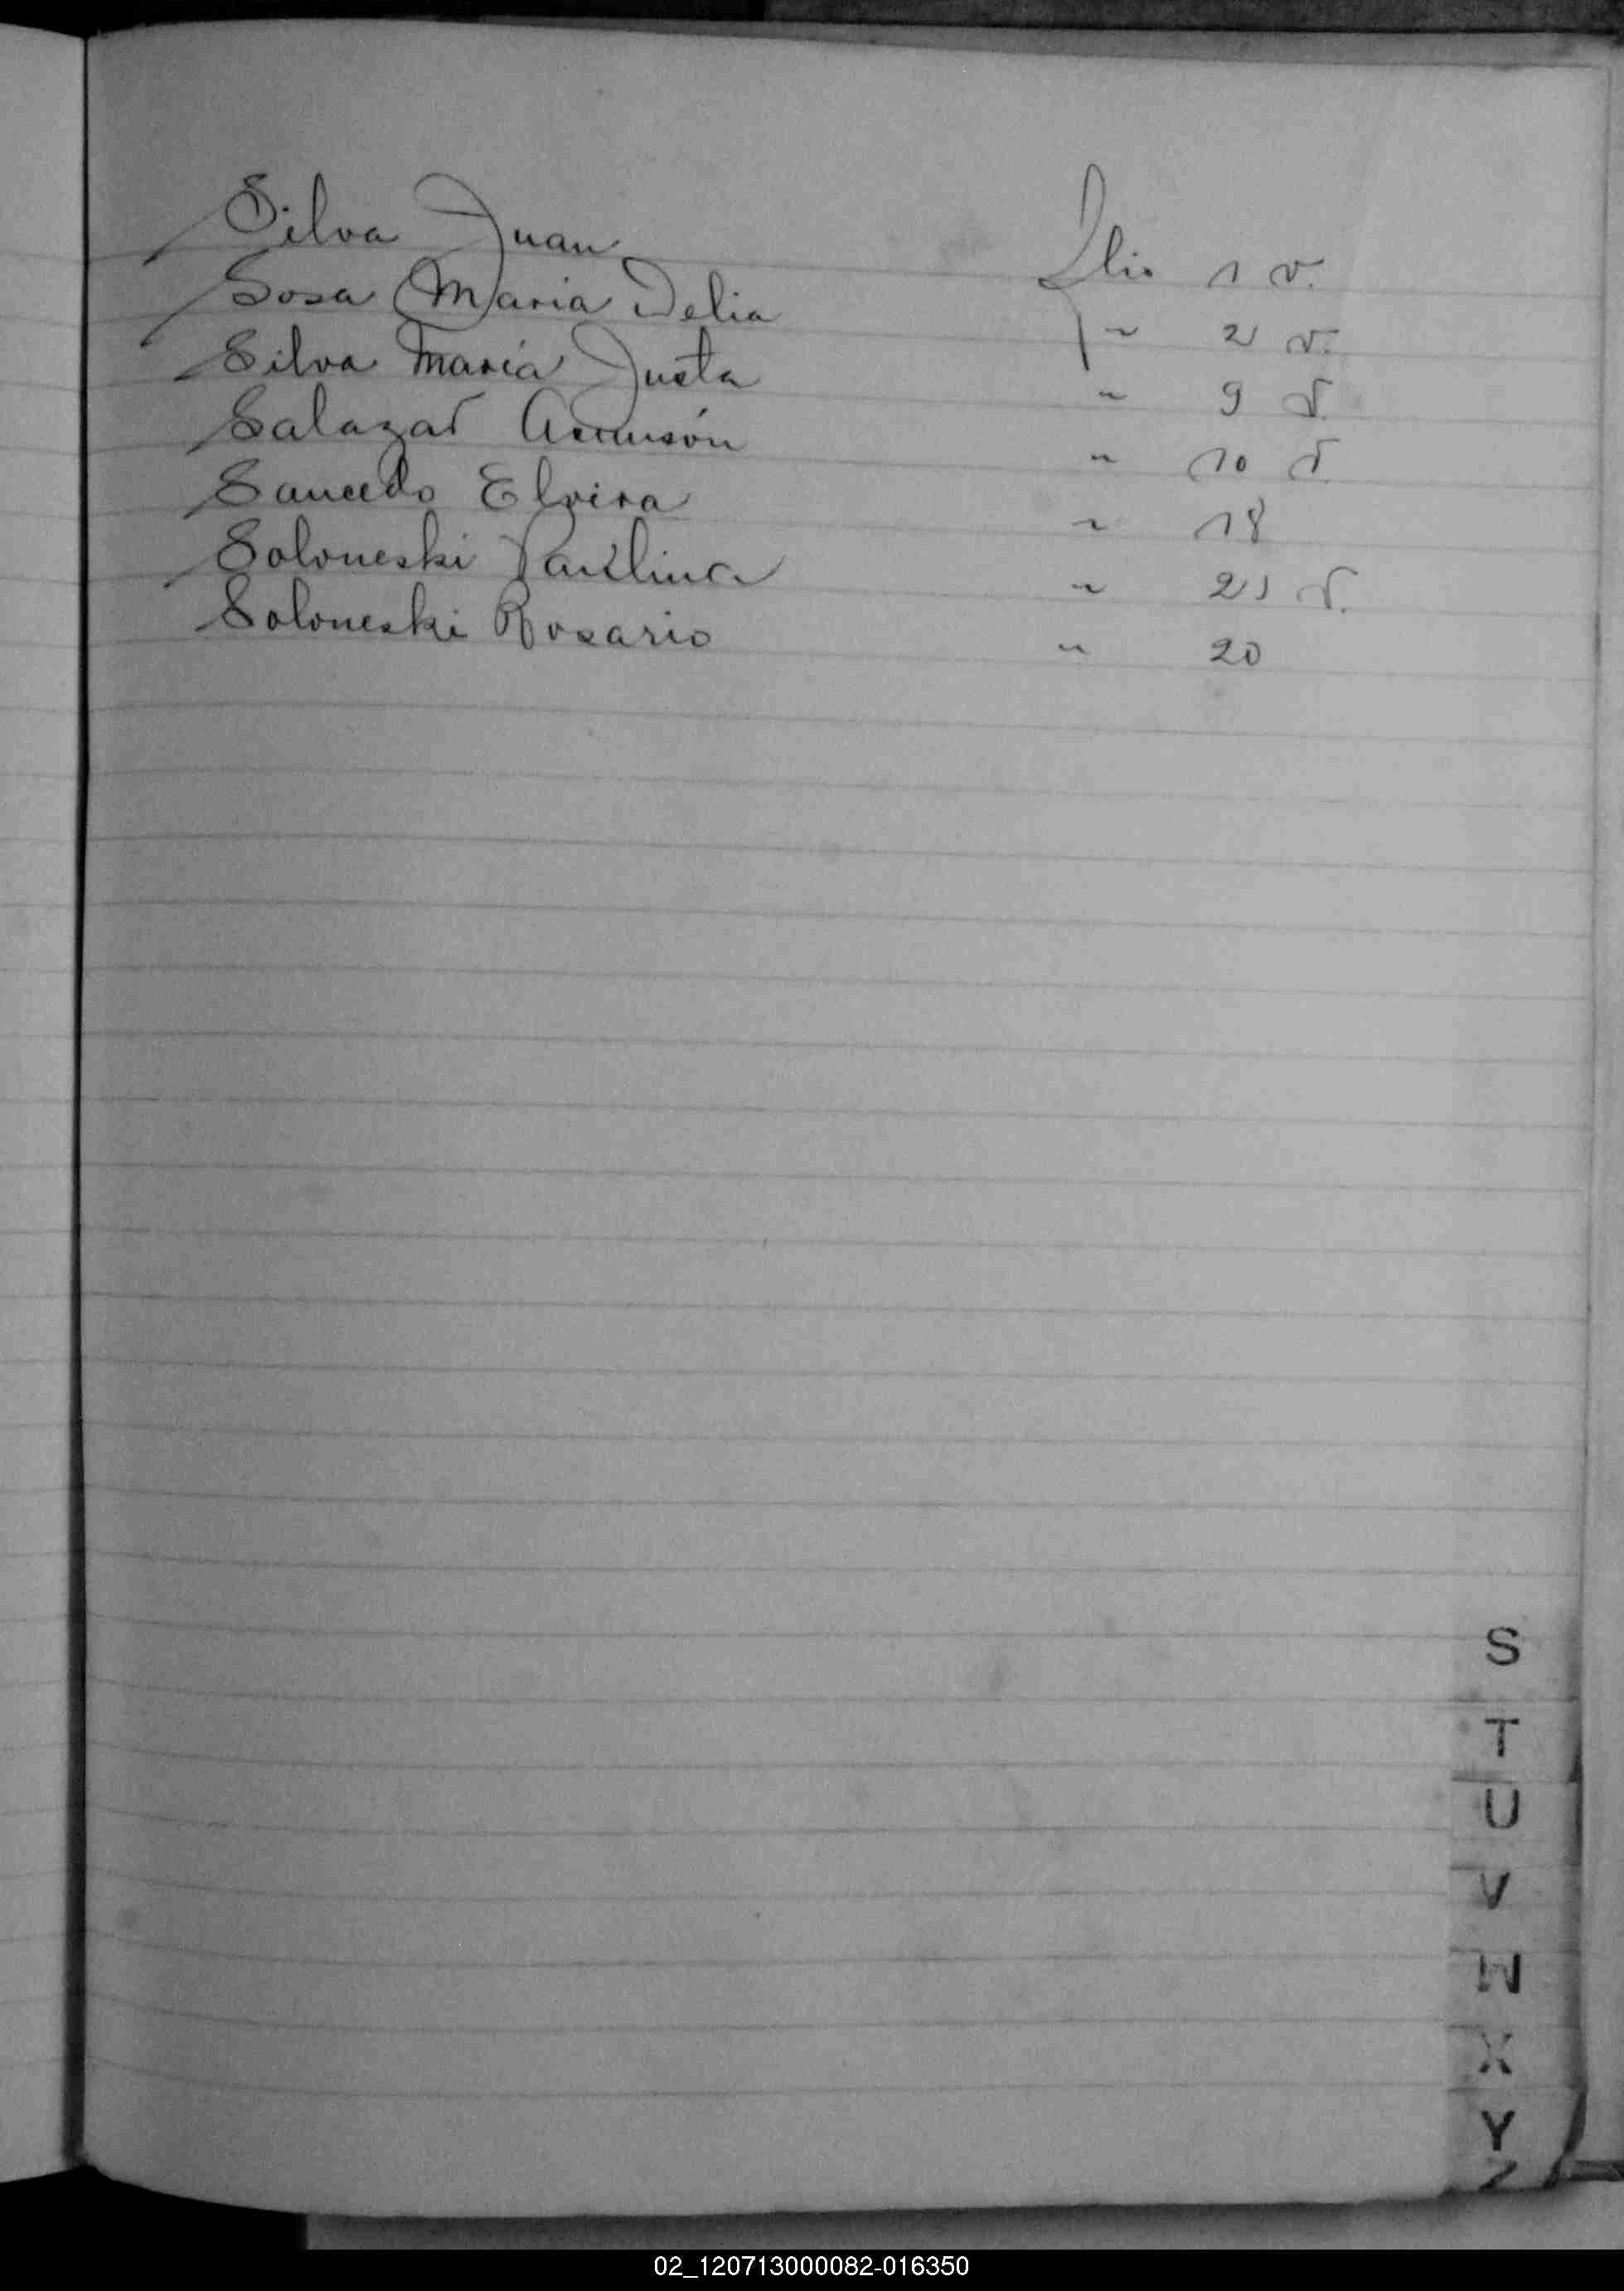 Silva Juan Flio 1 v.
Sosa Maria Delia " 2 v.
Silva Maria Justa " 9 v.
Salazar Asunsón " 10 v.
Saucedo Elvira " 18
Soloneski Paulina " 21 v.
Soloneski Rosario " 20
S
T
U
V
W
X
Y
Z
02_120713000082-016350